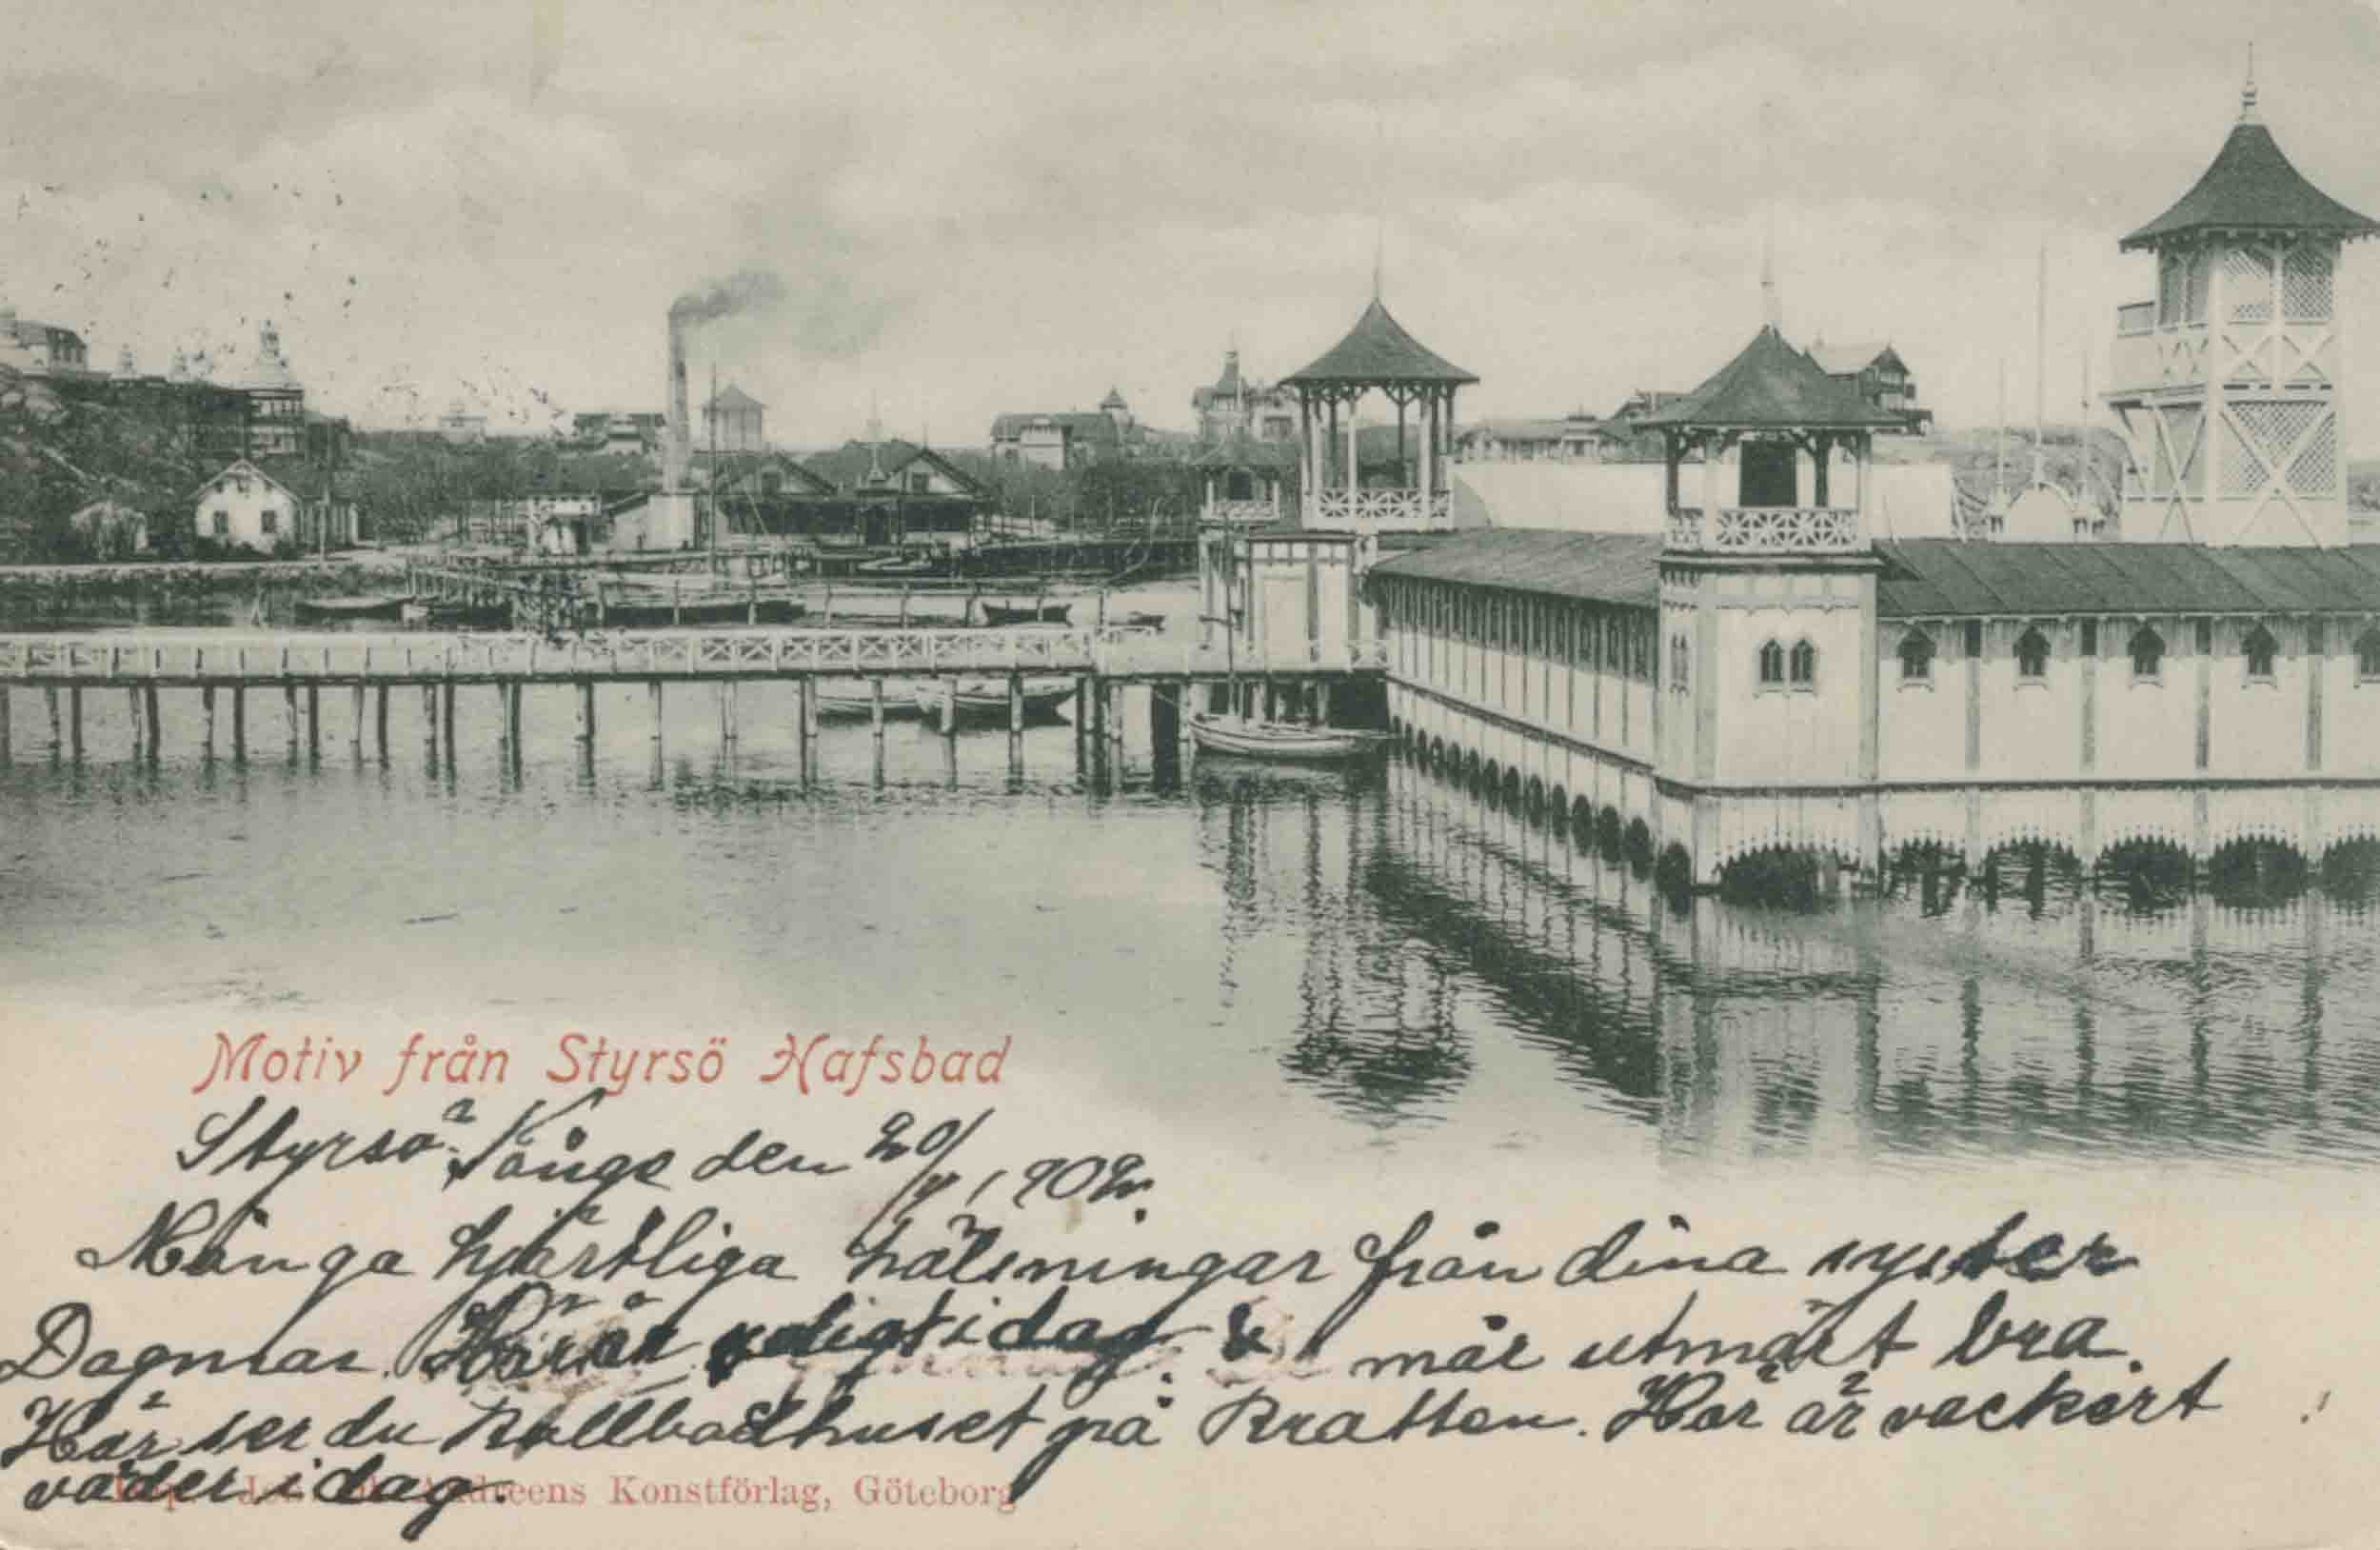 Motiv från Styrsö Hafsbad
Styrsö-Tånge den 20/ 1902.
Många hjärtliga hälsningar från dina syster
Dagmar. Här är idag. & mår utmärkt bra.
Här ser du Kallbadhuset på Bratten. Här är vackert
väder i dag.
Andreens Konstförlag, Göteborg